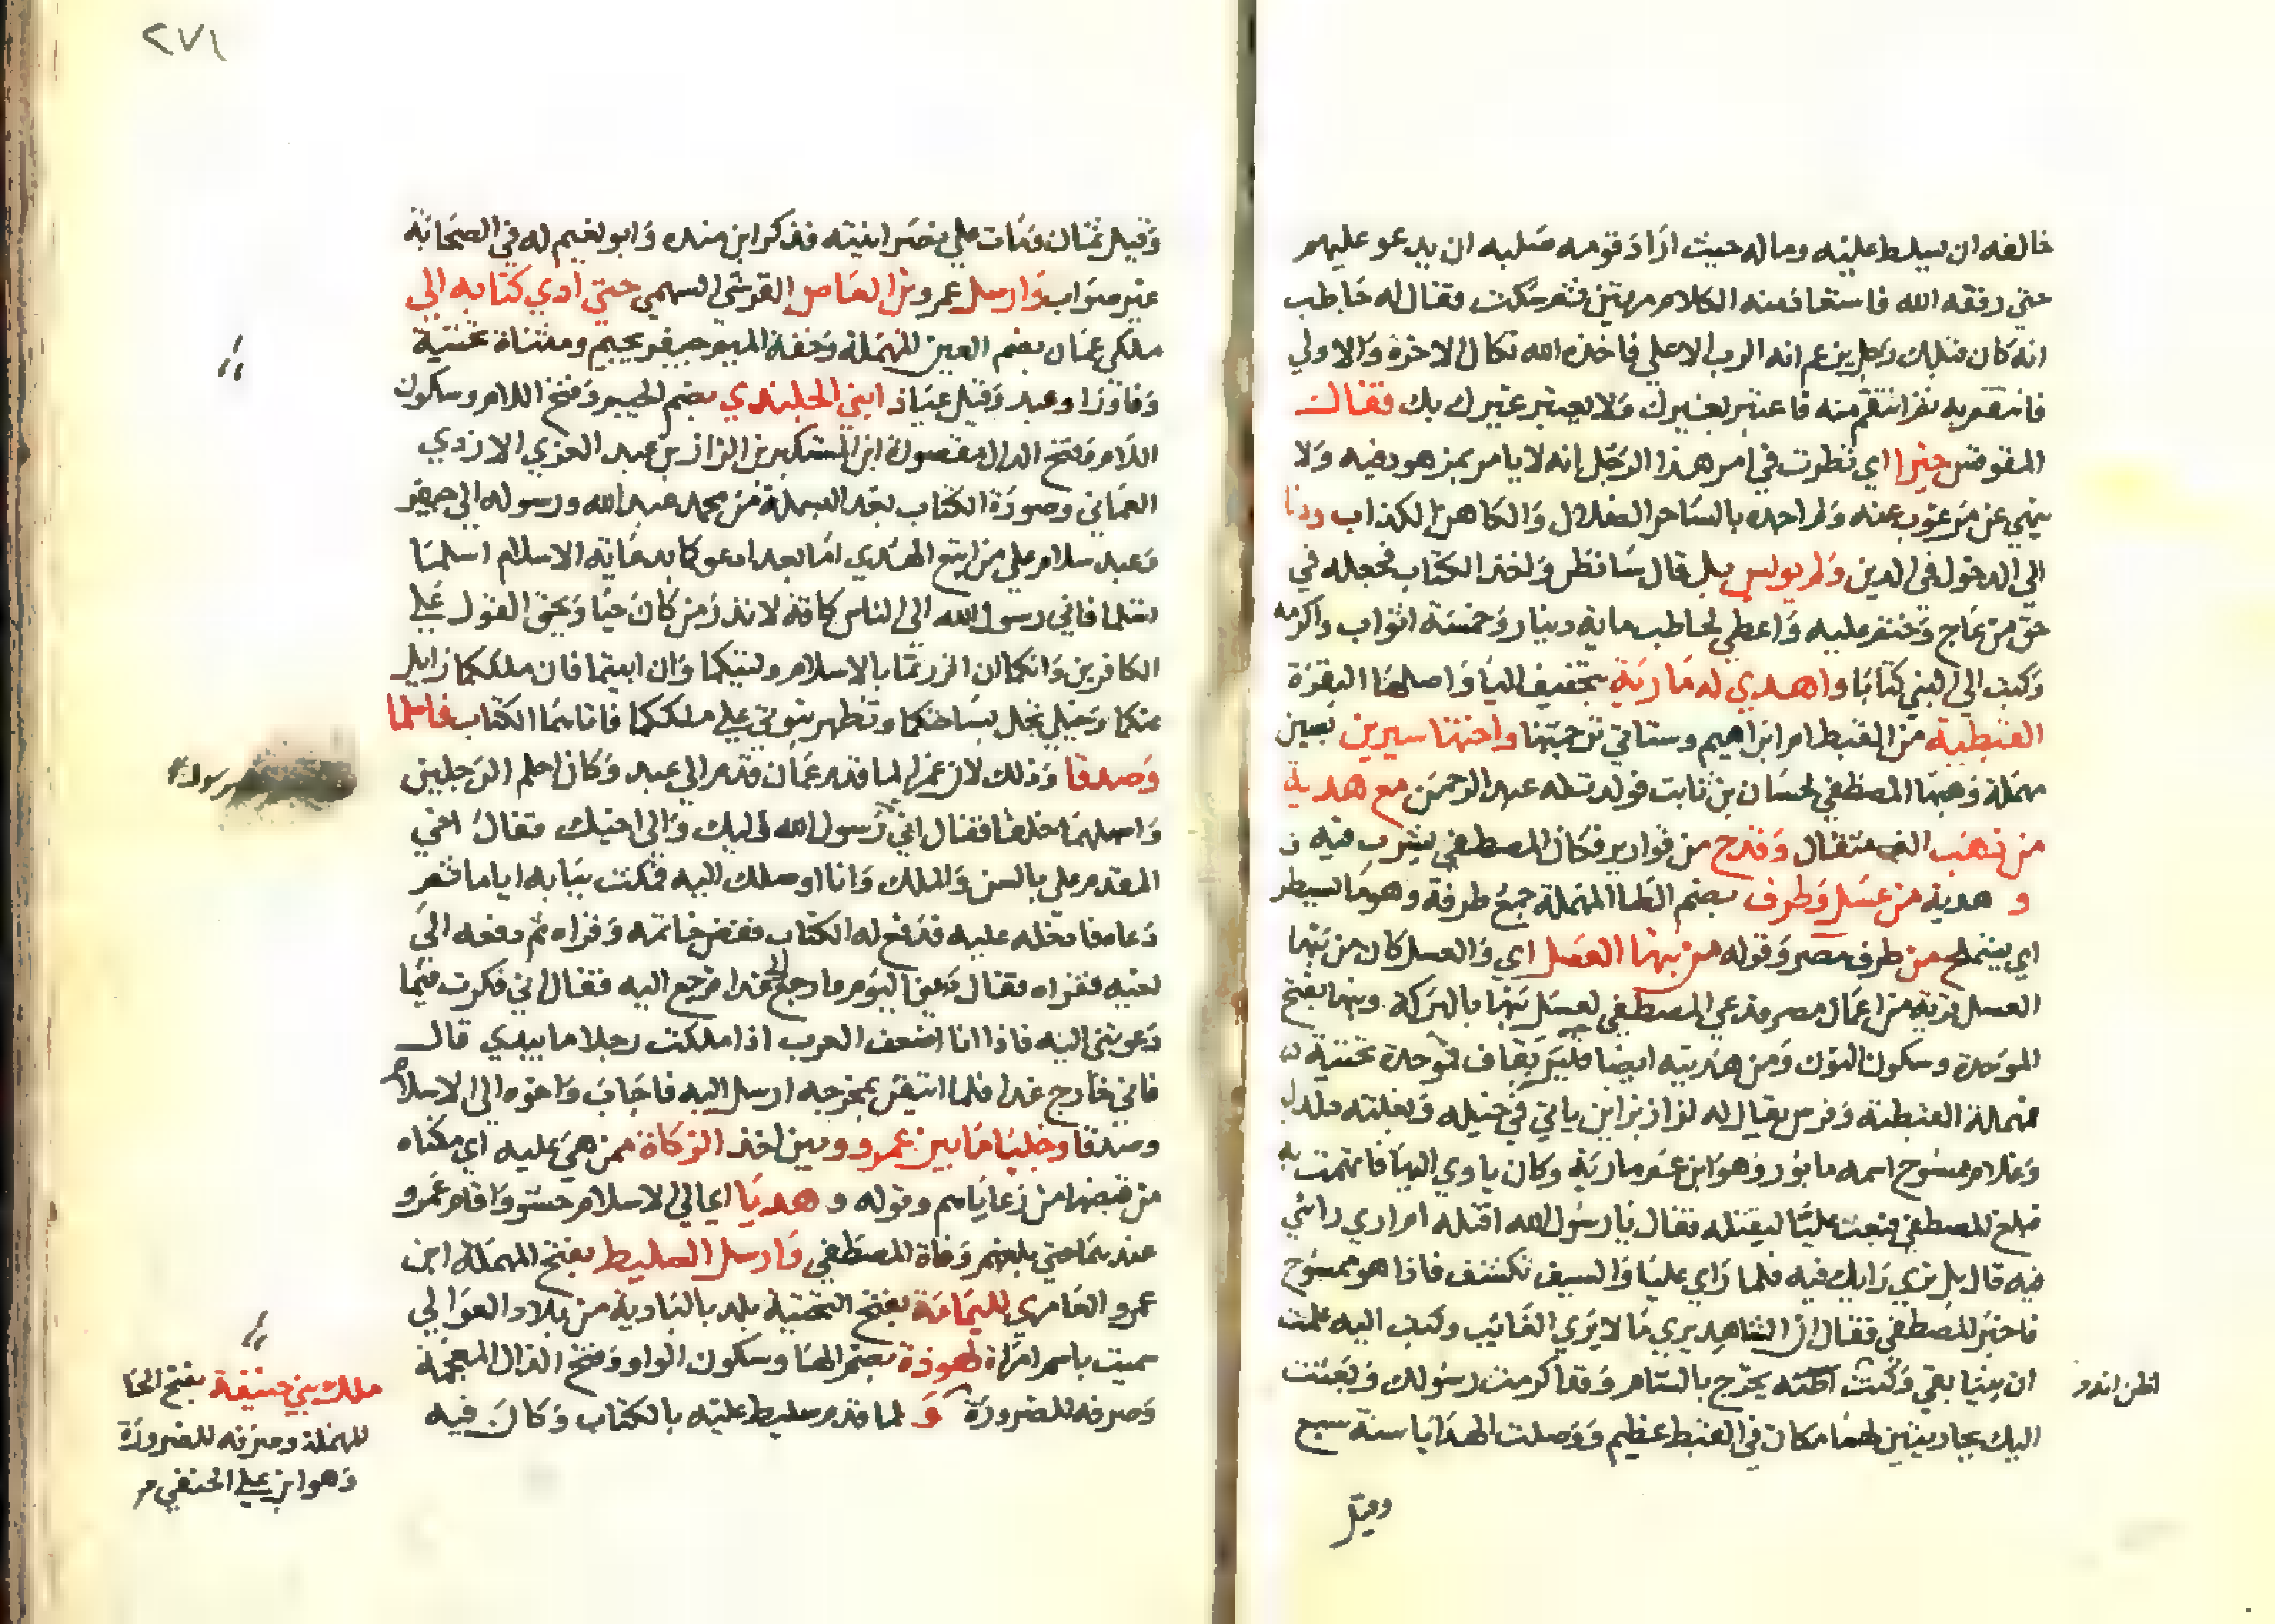 خالفه ان يسلط عليه وماله حيث اراد قومه صلبه ان يدعو عليهم
حتي رفعه الله فاستعاد منه الكلام مرتين ثم سكت فقال له حاطب
انه كان قبلك رجل يزعم انه الرب الاعلي فاخذه الله نكال الاخرة والاولي
فانتقم به ثم انتقم منه فاعتبر بغيرك ولا يعتبر غيرك بك فقال
المقوقس خيرا اي نظرت في امر هذا الرجل انه لا يامر بمزهود فيه ولا
ينهي عن مرغوب عنه ولم اجده بالساحر الضلال والكاهن الكذاب ودنا
الي الدخول في الدين ولم يولس بل قال سانظر واخذ الكتاب فجعله في
حق من عاج وختم عليه واعطي لحاطب ماية دينار وخمسة اثواب واكرمه
وكتب الي النبي كتابا واهدي له مارية بتخفيف اليا واصلها البقرة
القبطية من القبط ام ابراهيم وستاتي ترجمتها واختها سيرين بسين
مهملة وهبها المصطفي لحسان بن ثابت فولدت له عبد الرحمن مع هدية
من ذهب الف مثقال وقدح من قوارير فكان المصطفي يشرب فيه
و هدية من عسل وطرف بضم الطا المهملة جمع طرفة وهو ما
اي من طرف مصر وقوله من بنها العسل اي والعسل كان من بنها
العسل قرية من اعمال مصر ودعي المصطفي لعسل بنها بالبركة وبنها بفتح
الموحدة وسكون النون ومن هديته ايضا بقاف فموحدة تحتية
مهملة القبطية وفرس يقال له لزاز بزاين ياتي في خيله وبغلته دلدل
وغلام ممسوح اسمه مابور وهو ابن عم مارية وكان ياوي اليها فاتهمت به
فبلغ المصطفي فبعث عليا ليقتله فقال يا رسول الله اقتله ام اري رائي
فيه قال بل تري رايك فيه فلما راي عليا والسيف تكشف فاذا هو ممسوح
فاخبر المصطفي فقال ان الشاهد يري ما لا يري الغايب وكتب اليه علمت
ان نبيا بقي وكنت اظنه يخرج بالشام وقد اكرمت رسولك وبعثت
اليك بجاريتين لهما مكان في القبط عظيم ووصلت الهدايا سنة سبع
وقيل
اظن انه
٢٧١
وقيل ثمان ومات علي نصرانيته فذكر ابن منده وابو نعيم له في الصحابة
غير صواب وارسل عمرو بن العاص القرشي السهمي حتي ادي كتابه الي
ملكي عمان بضم العين المهملة وخفة الميم جيفر بجيم ومثناة تحتية
وفا وزا وعبد وقيل عياذ ابني الجلندي بضم الجيم وفتح اللام وسكون
اللام وفتح الدال مقصورة ابن المستكبر بن الزاز بن عبد العزي الازدي
العماني وصورة الكتاب بعد البسملة من محمد عبد الله ورسوله الي جيفر
وعبد سلام علي من اتبع الهدي اما بعد ادعوكا بدعاية الاسلام اسلما
تسلما فاني رسول الله الي الناس كافة لانذر من كان حيا ويحق القول علي
الكافرين وانكما ان اقررتما بالاسلام وليتكما وان ابيتما فان ملككما زايل
عنكما وخيلي تحل بساحتكما وتظهر نبوتي علي ملككما فاتاهما الكتاب فاسلما
وصدقا وذلك لان عمرا لما قدم عمان قدم الي عبد وكان احلم الرجلين
واسهلهما خلقا فقال اني رسول الله اليك والي اخيك فقال اخي
المقدم علي بالسن والملك وانا اوصلك اليه فمكث ببابه اياما ثم
دعاه فادخله عليه فدفع له الكتاب ففض خاتمه وقراه ثم دفعه الي
اخيه فقراه فقال دعني اليوم وارجع الي غدا فرجع اليه فقال اني فكرت فيما
دعوتني اليه فاذا انا اضعف العرب اذا ملكت رجلا ما بيدي قال
فاني خارج غدا فلما ايقن بمخرجه ارسل اليه فاجاب واخوه الي الاسلام
وصدقا وخليا ما بين عمرو وبين اخذ الزكاة ممن هي عليه اي مكناه
من قبضها من رعاياهم وقوله و هديا اي الي الاسلام واقام عمرو
عندهما حتي بلغهم وفاة المصطفي وارسل السليط بفتح المهملة ابن
عمرو العامري لليمامة بفتح التحتية بلد بالبادية من بلاد العوالي
سميت باسم امراة لهوذة بضم الها وسكون الواو وفتح الذال المعجمة
وصرفه للضرورة و لما قدم سليط عليه بالكتاب وكان فيه
رسول
ملك بني حنيفة بفتح الحا
المهملة وصرفه للضرورة
وهو ابن علي الحنفي